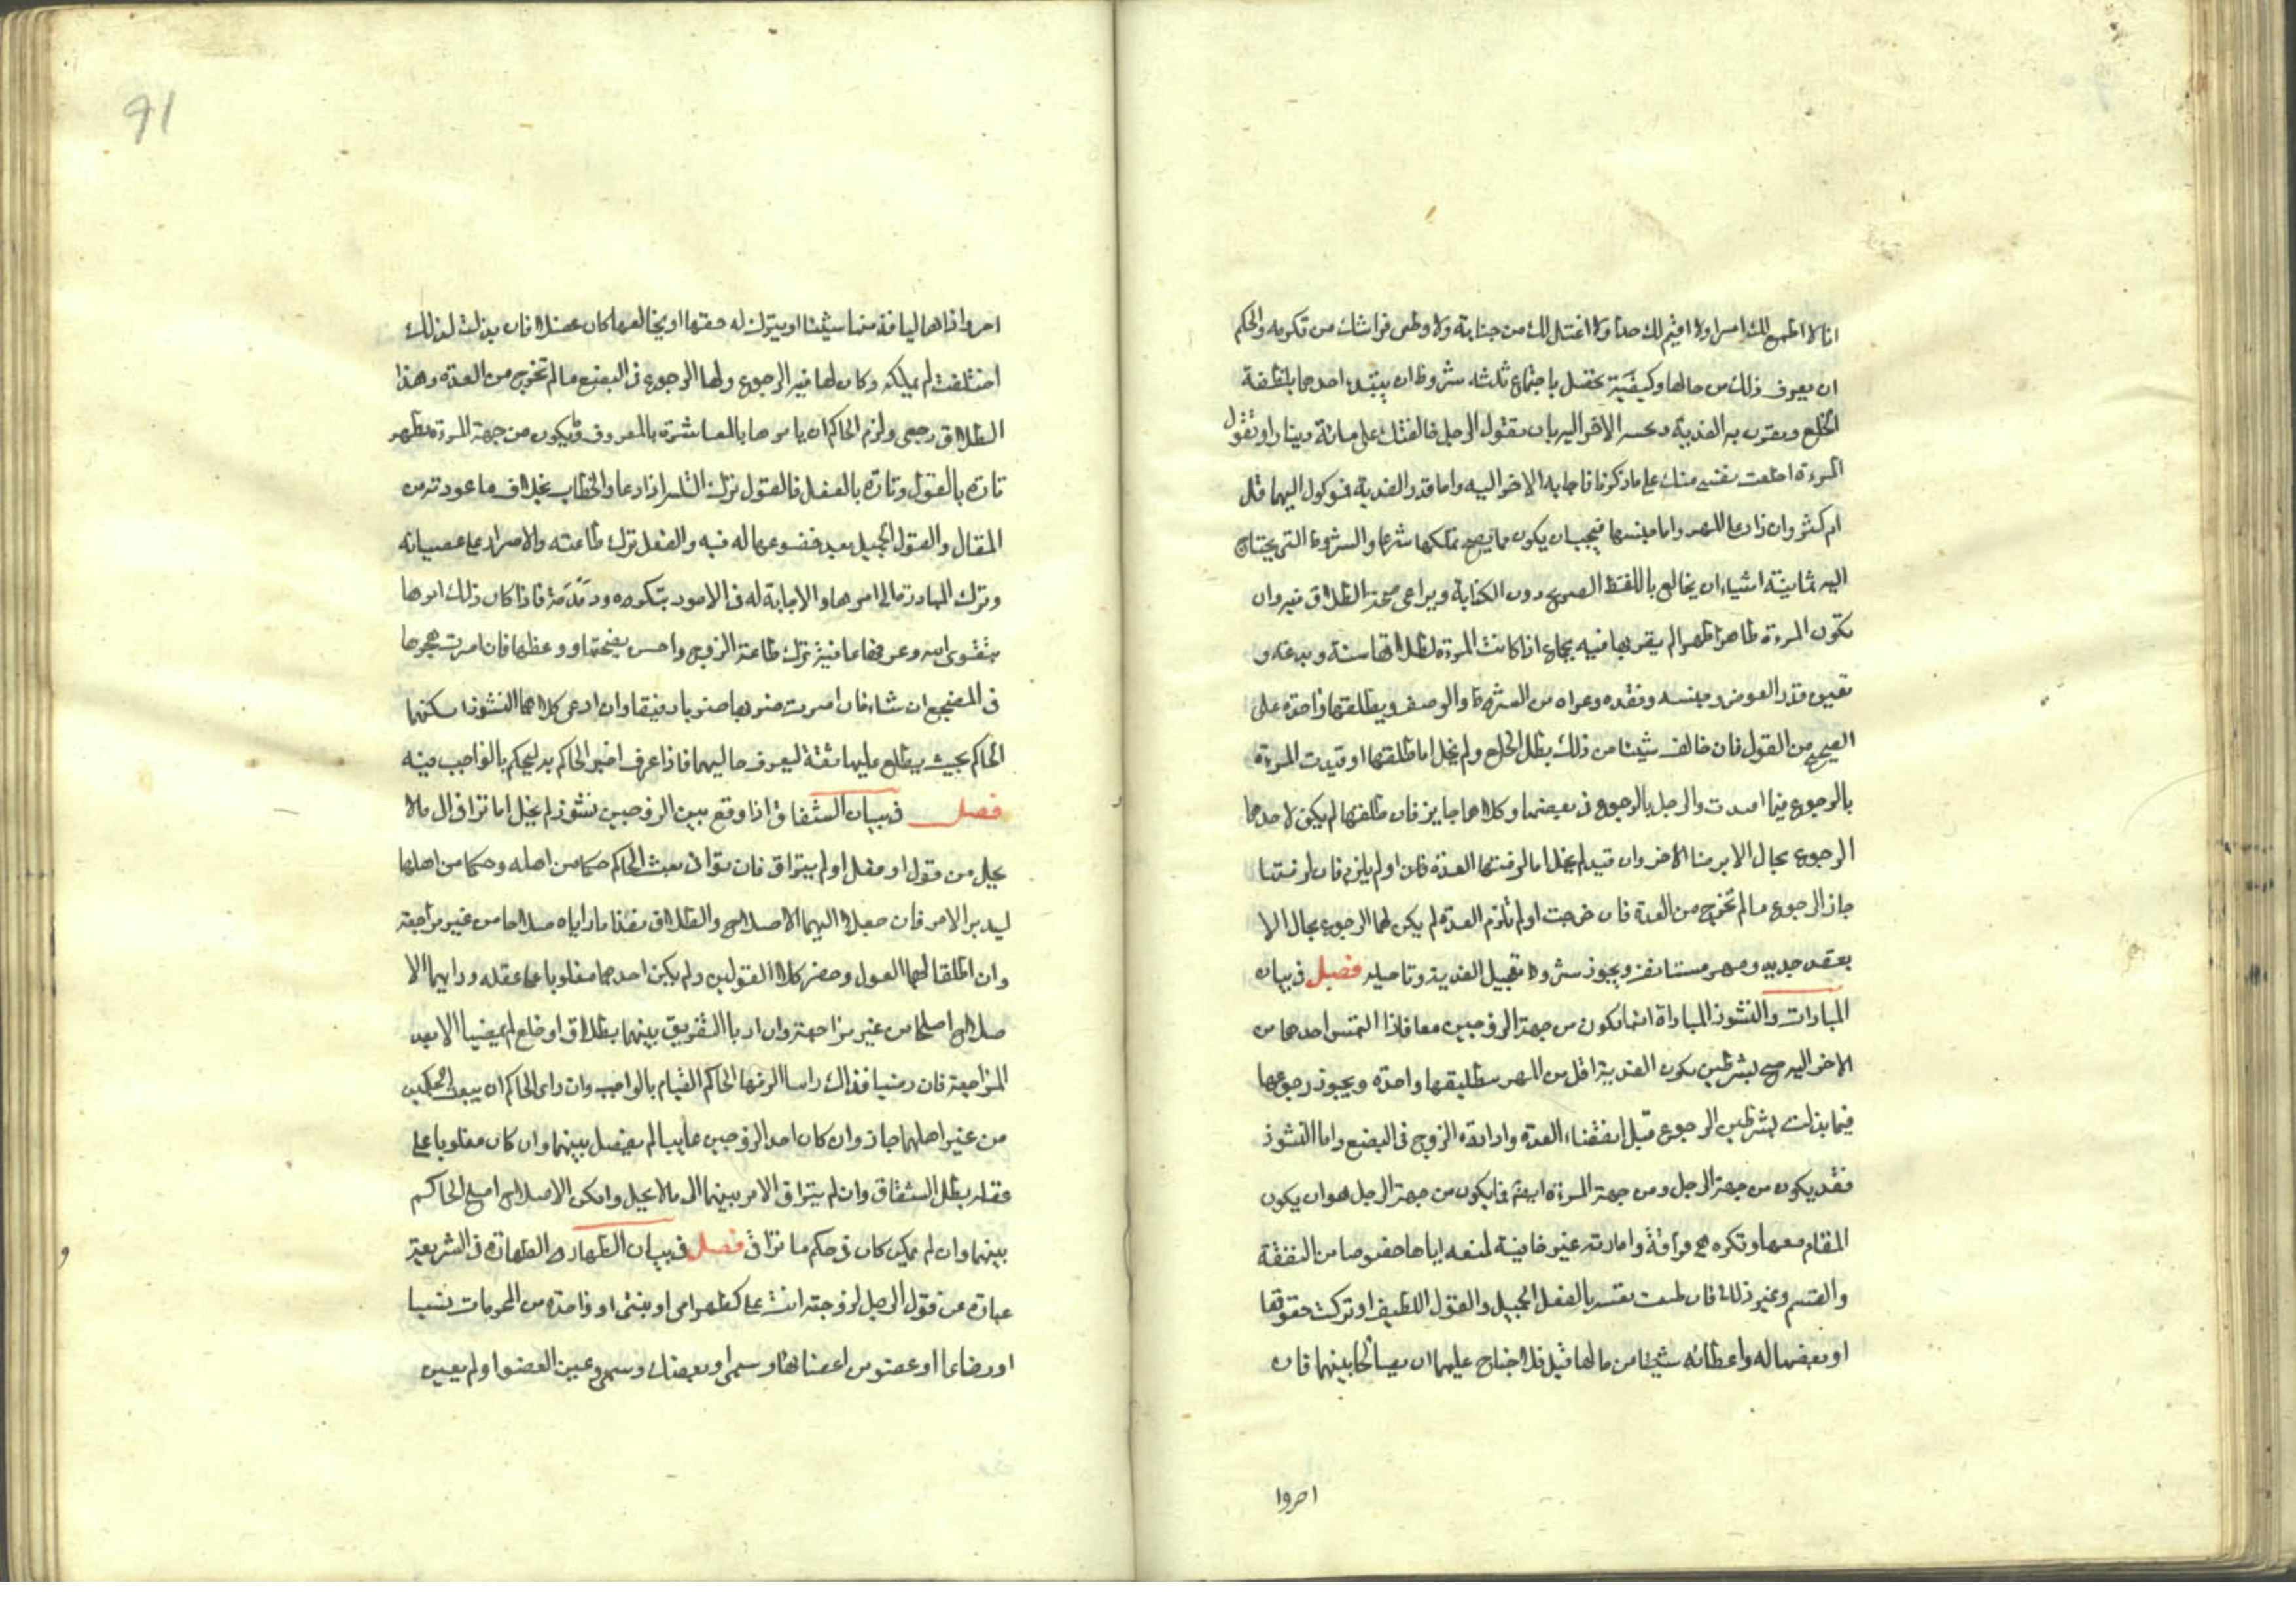 انا لا اطيع لك امرا ولا اقيم لك حدا ولا اغتسل لك من جنابة ولا وطى فراشك من تكرهه والحكم
ان يعرف ذلك من حالها وكيفية يحصل باجتماع ثلثة شروط ان يبتدء احدهما بلفظة
الخلع ويقرن به الفدية ويجيبه الاخر اليه بان يقول الرجل خالعتك على مائة دينار او تقول
المرءة اختلعت نفسى منك على ما ذكرنا فاجابه الاخر اليه واما قدر الفدية فموكول اليهما قل
ام كثر وان زاد على المهر واما جنسها فيجب ان يكون مما يصح تملكها شرعا والشروط التى يحتاج
اليه ثمانية اشياء ان يخالع باللفظ الصريح دون الكناية ويراعى صحة الطلاق فيه وان
تكون المرءة طاهرا طهرا لم يقربها فيه بجماع اذا كانت المرءة لطلاقها سنة وبدعة و
تعيين قدر العوض وجنسه ونقده وعراه من الشرط والوصف ويطلقها واحدة على
الصحيح من القول فان خالف شيئا من ذلك بطل الخلع ولم يخل اما طلقها او قيدت المرءة
بالرجوع فيما افدت والرجل بالرجوع فى بعضها وكلاهما جايز فان طلقها لم يكن لاحدهما
الرجوع بحال الا برضا الاخر وان قيد لم يخل اما لزمتها العدة فان او لم يلزم فان لزمتها
جاز الرجوع ما لم تخرج من العدة فان خرجت او لم تلزم العدة لم يكن لهما الرجوع بحال الا
بعقد جديد ومهر مستانف ويجوز شروط تعجيل الفدية وتاجيله فصل فى بيان
المبارات والنشوز المباراة انما تكون من جهة الزوجين معا فاذا التمس احدهما من
الاخر اليه صح بشرطين يكون الفدية اقل من المهر بتطليقها واحدة ويجوز رجوعها
فيما بذلت بشرطين الرجوع قبل انقضاء العدة وارادة الزوج فى البضع واما النشوز
فقد يكون من جهة الرجل ومن جهة المرءة ايضا فما يكون من جهة الرجل هو ان يكون
المقام معها وتكره هى فراقه وامارته غير خافية لمنعه اياها حقوقها من النفقة
والقسم وغير ذلك فان نفسه بالفعل الجميل والقول اللطيف او تركت حقوقها
او بعضها له واعطائه شيئا من مالها قبل فلا جناح عليهما ان يصالحا بينهما فان
احروا
احروا اذاها ليا فذ منها شيئا او يترك له حقها او يخالعها كان عضلا فان بذلت لذلك
اختلعت لم يملكه وكان لها فيه الرجوع ولها الرجوع فى البضع ما لم تخرج من العدة وهذا
الطلاق رجعى ولزم الحاكم ان يامرها بالمعاشرة بالمعروف وما يكون من جهة المرءة يظهر
تارة بالقول وتارة بالفعل فالقول ترك الناس اذا دعا والخطاب بخلاف ما عودته من
المقال والقول الجميل بعد خضوعها له فيه والفعل ترك طاعته والاصرار على عصيانه
وترك المبادرة الى امرها والاجابة له فى الامور بتكره ودَمْدَمة فاذا كان ذلك امرها
بتقوى الله وعرفها ما فيه ترك طاعة الزوج واحسن نصيحتها ووعظها فان اصرت هجرها
فى المضجع ان شاء فان اصرت ضربها ضربا رفيقا وان ادعى كلاهما النشوز اسكنهما
الحاكم بحيث يطلع عليهما ثقة ليعرف حاليهما فاذا عرف اخبر الحاكم به ليحكم بالواجب فيه
فصل فى بيان الشقاق اذا وقع بين الزوجين نشوز لم يخل اما تراقى الى ما لا
يحل من قول او فعل او لم يتراق فان تراقى بعث الحاكم حكما من اهله وحكما من اهلها
ليدبر الامر فان جعلا اليهما الاصلاح والطلاق نفذا ما راياه صلاحا من غير مراجعة
وان اطلقا لهما القول وحضر كلا القولين ولم يكن احدهما مغلوبا على عقله ورايهما الا
صلاح اصلحا من غير مراجعة وان اربا التفريق بينهما بطلاق او خلع لم يمضيا الا بعد
المراجعة فان رضيا فذاك راسا الزمها الحاكم القيام بالواجب وان راى الحاكم ان يبعث الحكمين
من غير اهلهما جاز وان كان احد الزوجين غايبا لم يفصل بينهما وان كان مغلوبا على
عقله بطل الشقاق وان لم يتراق الامر بينهما الى ما لا يحل وامكن الاصلاح اصلح الحاكم
بينهما وان لم يمكن كان فى حكم ما تراقى فصل فى بيان الظهار الظهار فى الشريعة
عبارة عن قول الرجل لزوجته انت على كظهر امى او بنتى او واحدة من المحرمات نسبا
او رضاعا او عضو من اعضائها وسمى او بعضك وسمى وعين العضو او لم يعين
91